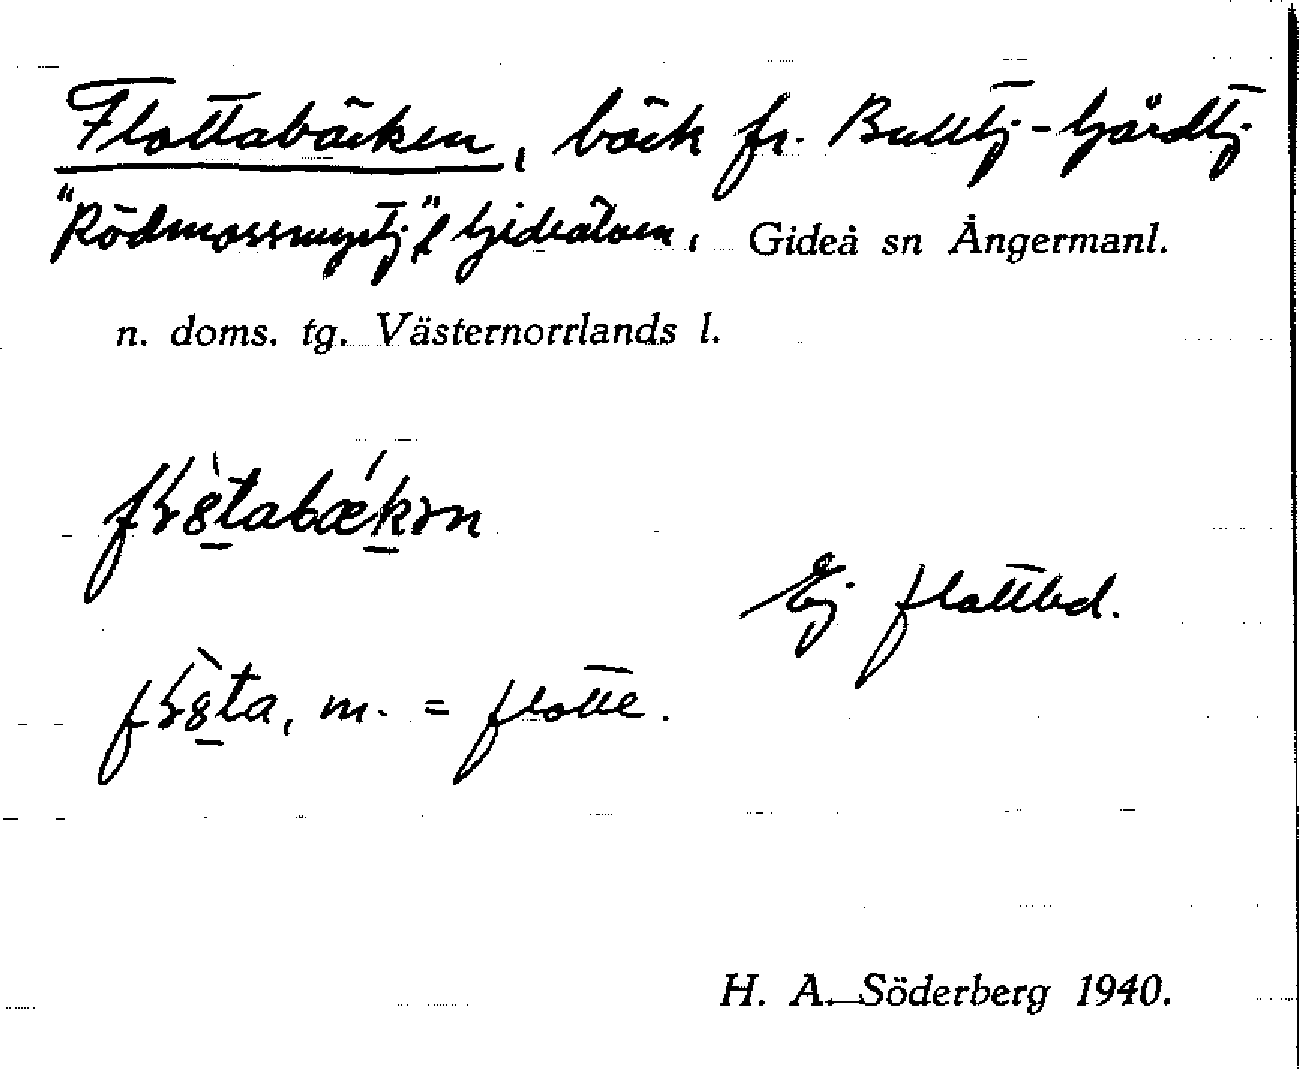 Flottabäcken, bäck fr. Bulltj-Gårdtj
"Rödmossmyrtj" t Gideälven, Gideå sn Ångermanl.
n. doms. tg. Västernorrlands l.
Ej flottled.
m. = flotte.
H. A. Söderberg 1940.